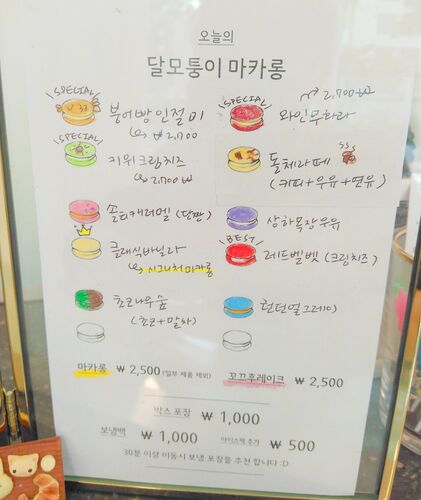 오늘의
달모퉁이 마카롱
SPECIAL
붕어빵 인절미
↳ ₩2,700
SPECIAL
키위크림치즈
↳ 2,700 ₩
솔티캐러멜 (단짠)
클래식바닐라
↳ 시그니처마카롱
초코나무숲
(초코+말차)
2,700 ₩
SPECIAL
와인무화과
돌체라떼
(커피+우유+연유)
상하목장우유
BEST
레드벨벳 (크림치즈)
런던얼그레이
마카롱 ₩ 2,500 (일부 제품 제외)
꼬끄후레이크 ₩ 2,500
박스 포장 ₩ 1,000
보냉백 ₩ 1,000
아이스팩 추가 ₩ 500
30분 이상 이동시 보냉 포장을 추천 합니다 :D